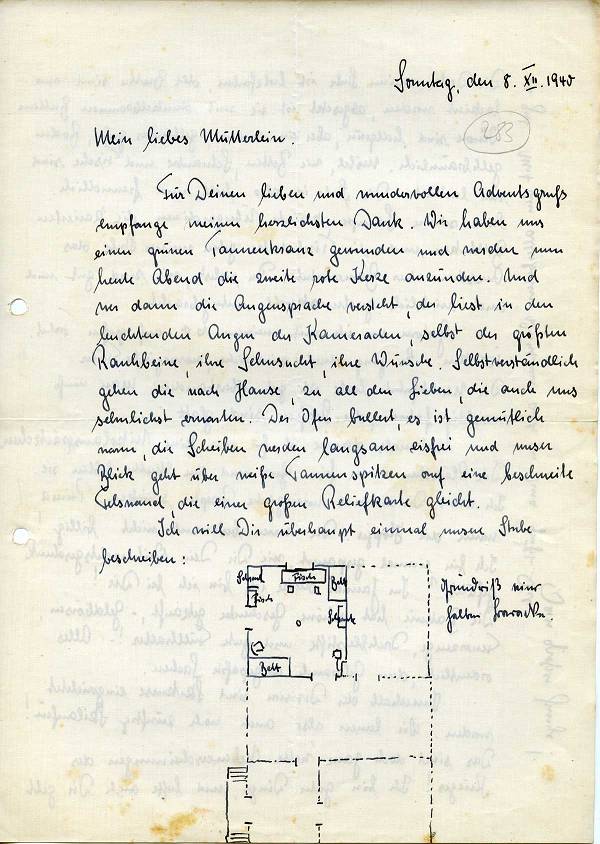 Sonntag, den 8. XII. 1940
283
Mein liebes Mütterlein.
Für Deinen lieben und wundervollen Adventsgruß
empfange meinen herzlichsten Dank. Wir haben uns
einen grünen Tannenkranz gewunden und werden nun
heute Abend die zweite rote Kerze anzünden. Und
wer dann die Augensprache versteht, der liest in den
leuchtenden Augen der Kameraden, selbst der größten
Rauhbeine, ihre Sehnsucht, ihre Wünsche. Selbstverständlich
gehen die nach Hause, zu all den Lieben, die auch uns
sehnlichst erwarten. Der Ofen bullert, es ist gemütlich
warm, die Scheiben werden langsam eisfrei und unser
Blick geht über weiße Tannenspitzen auf eine beschneite
Felswand, die einer großen Reliefkarte gleicht.
Ich will Dir überhaupt einmal unsere Stube
beschreiben:
Schrank
Tisch
Bett
Tisch
Schrank
Bett
Grundriß einer
halben Baracke.